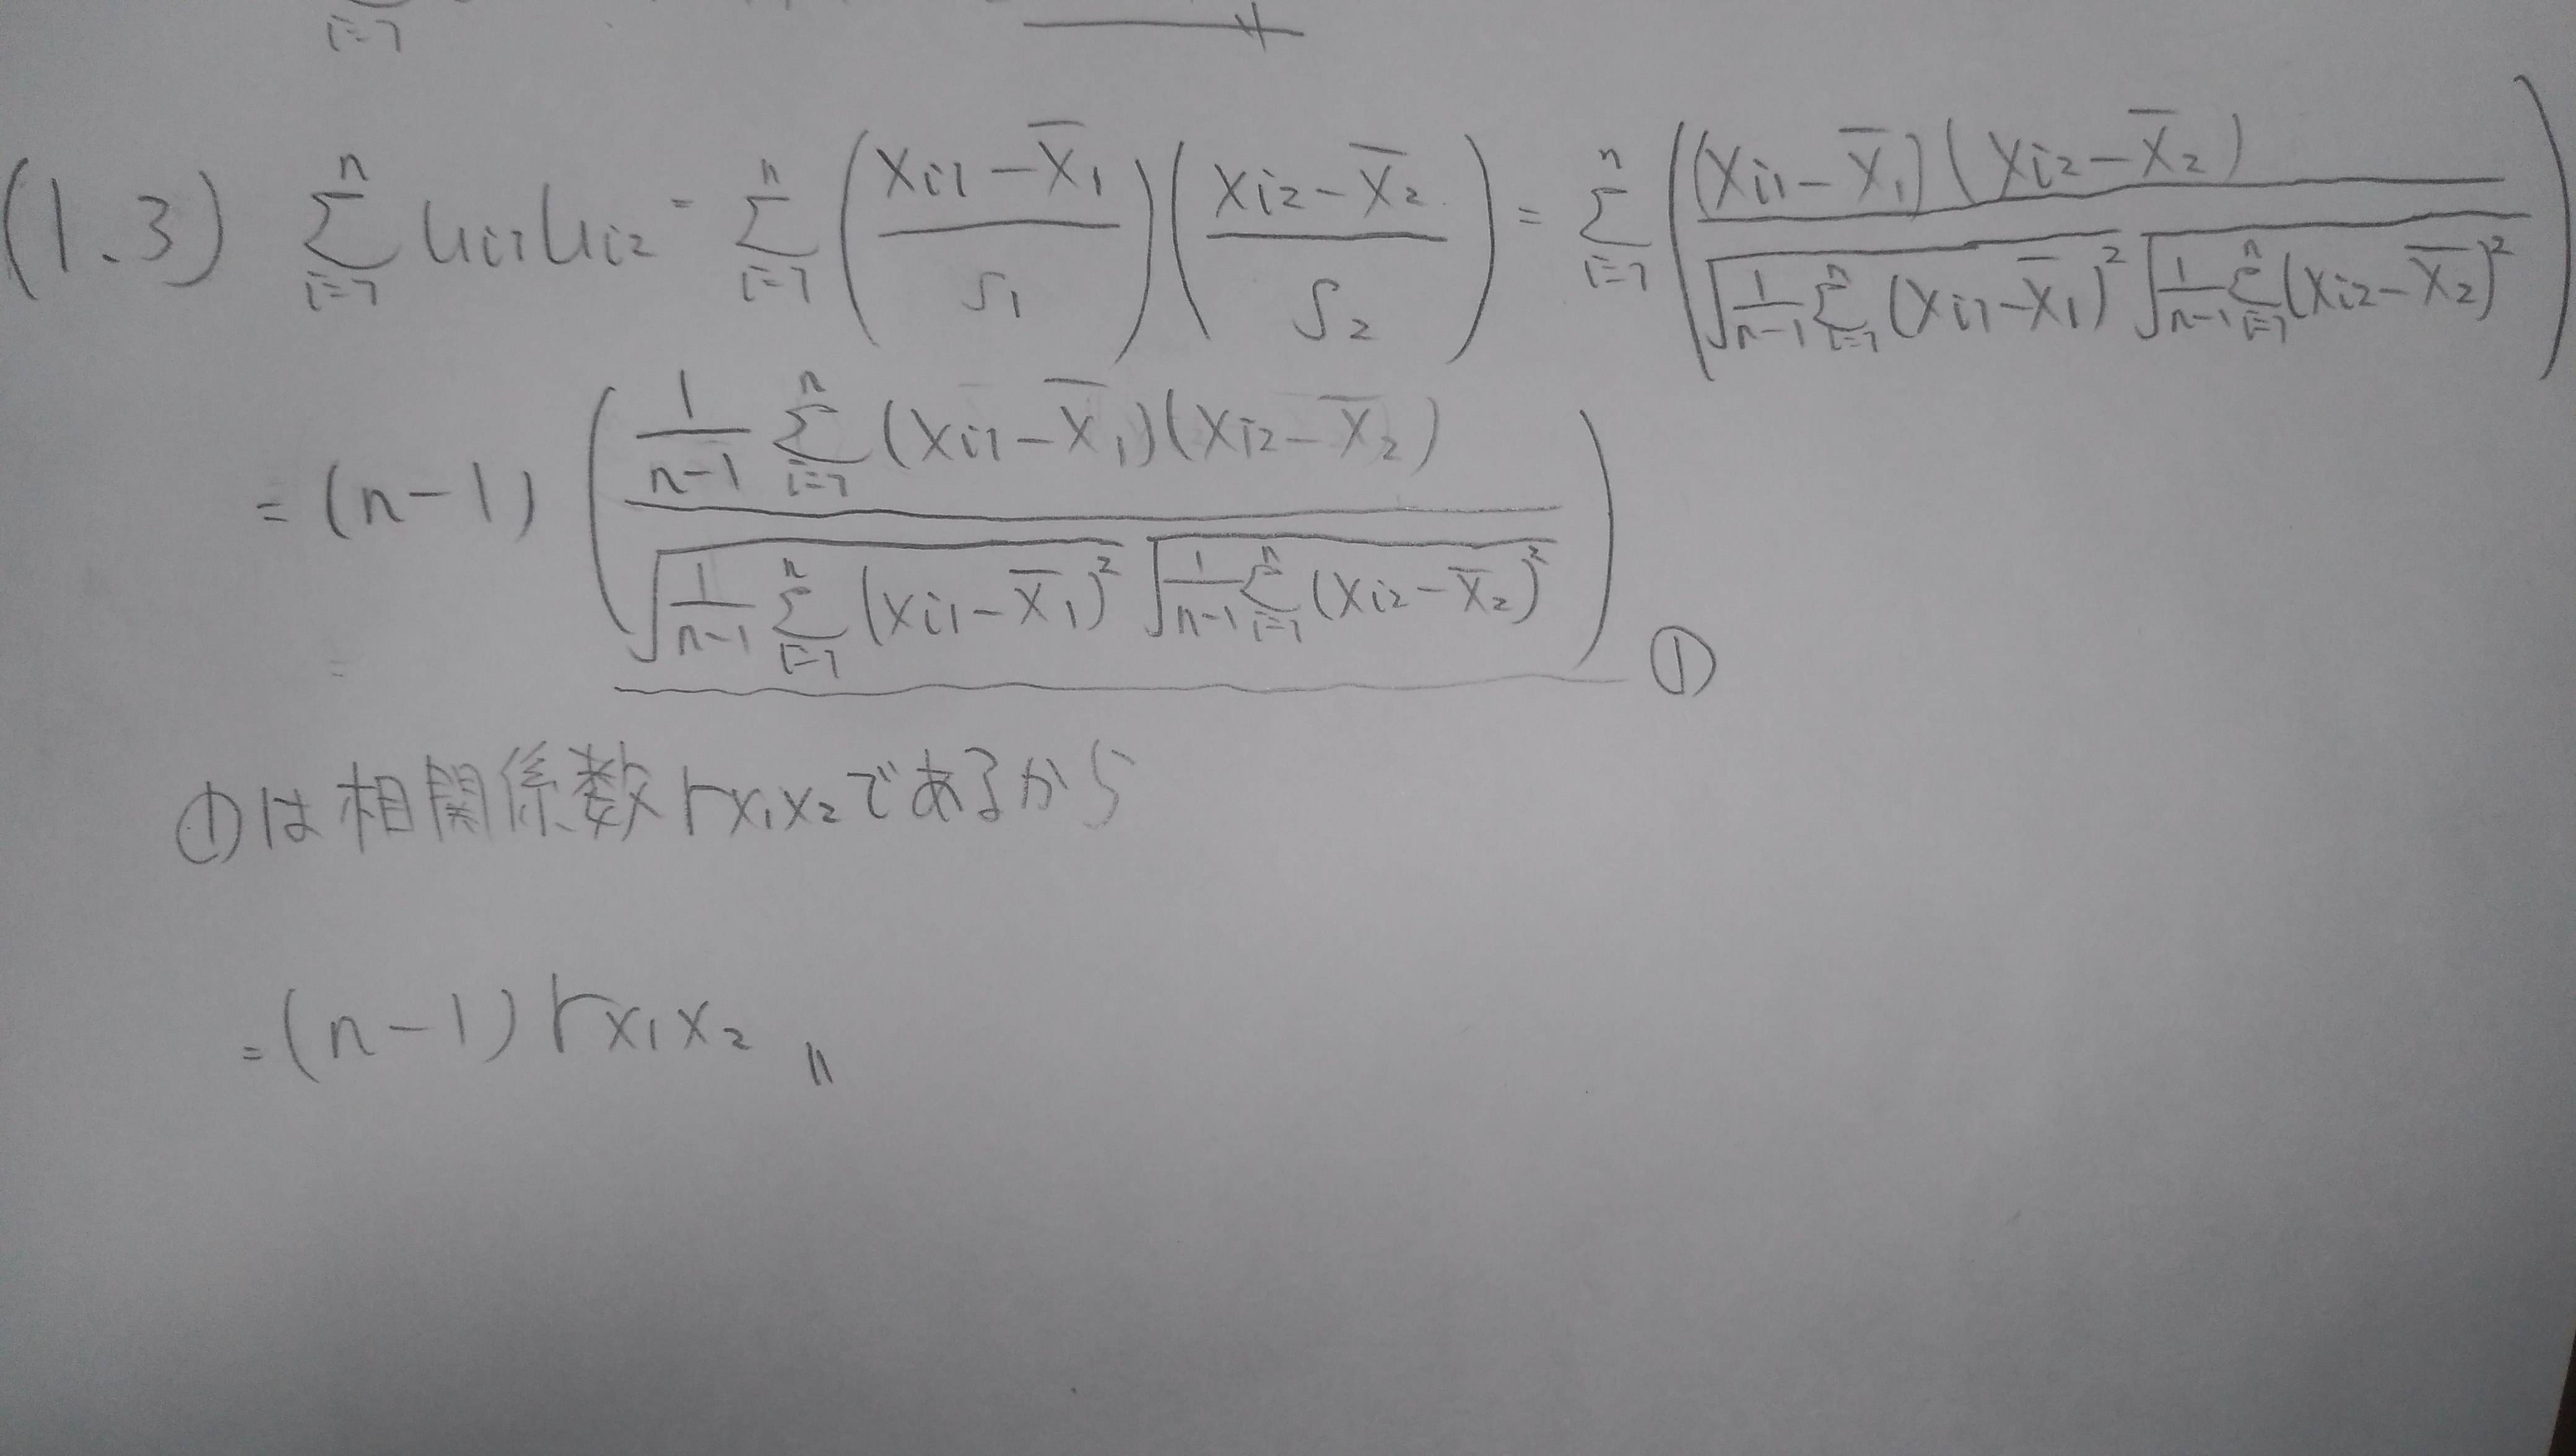 i=1
(1.3) \sum_{i=1}^{n} u_{i1}u_{i2} = \sum_{i=1}^{n} \left( \frac{x_{i1}-\overline{x}_1}{s_1} \right)\left( \frac{x_{i2}-\overline{x}_2}{s_2} \right) = \sum_{i=1}^{n} \left( \frac{(x_{i1}-\overline{x}_1)(x_{i2}-\overline{x}_2)}{\sqrt{\frac{1}{n-1}\sum_{i=1}^{n}(x_{i1}-\overline{x}_1)^2}\sqrt{\frac{1}{n-1}\sum_{i=1}^{n}(x_{i2}-\overline{x}_2)^2}} \right)
= (n-1) \left( \frac{\frac{1}{n-1}\sum_{i=1}^{n}(x_{i1}-\overline{x}_1)(x_{i2}-\overline{x}_2)}{\sqrt{\frac{1}{n-1}\sum_{i=1}^{n}(x_{i1}-\overline{x}_1)^2}\sqrt{\frac{1}{n-1}\sum_{i=1}^{n}(x_{i2}-\overline{x}_2)^2}} \right) ①
①は相関係数 r_{x_1x_2} であるから
= (n-1) r_{x_1x_2} 〃